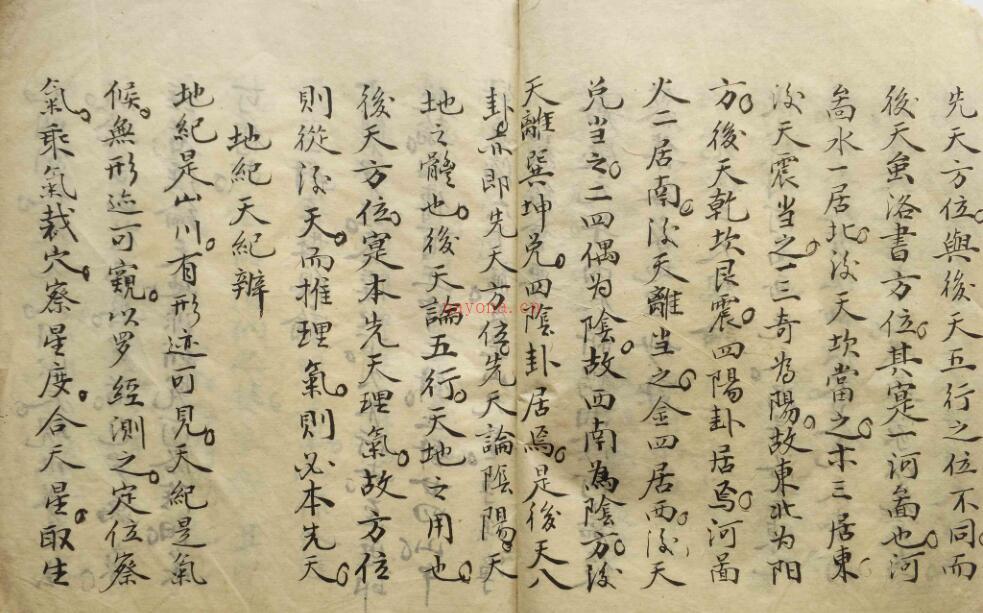 先天方位。與後天五行之位不同。而
後天虽洛書方位。其寔一河啚也。河
啚水一居北。後天坎當之。木三居東
後天震当之。一三奇為陽。故東北为阳
方。後天乾坎艮震。四陽卦居焉。河啚
火二居南。後天離当之。金四居西。後天
兑当之。二四偶为陰。故西南為陰方。後
天離巽坤兑。四陰卦居焉。是後天八
卦。亦即先天方位。先天論陰陽。天
地之體也。後天論五行。天地之用也。
後天方位。寔本先天理氣。故方位
則從後天。而推理氣。則必本先天。
地紀天紀辨
地紀是山川。有形迹可見。天紀是氣
候。無形迹可窺。以罗經測之。定位察
氣。乘氣裁穴。察星度。合天星。取生